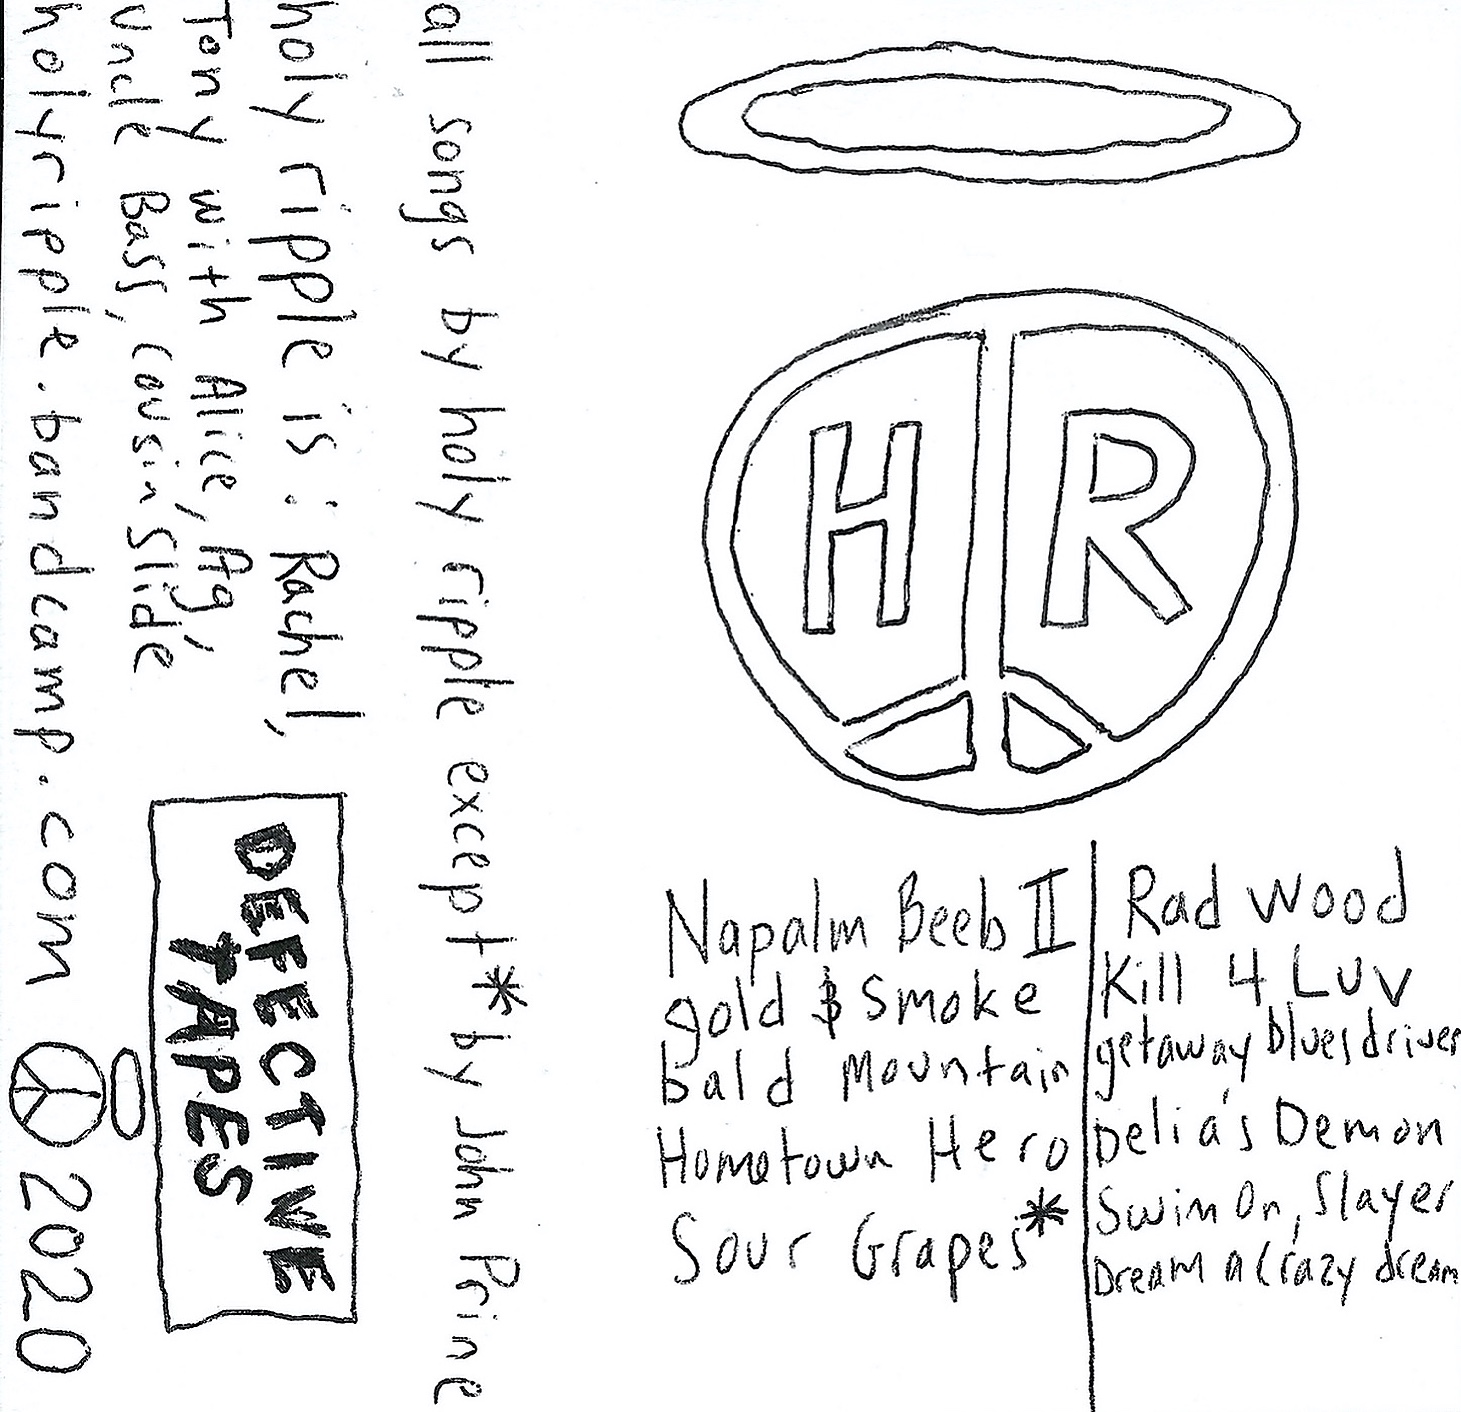 HR
Napalm Beeb II
gold & Smoke
bald Mountain
Hometown Hero
Sour Grapes*
Rad Wood
Kill 4 Luv
getaway blues driver
Delia's Demon
Swim On, Slayer
Dream a Crazy dream
all songs by holy ripple except * by John Prine
holy ripple is: Rachel,
Tony with Alice, Ag,
Uncle Bass, cousin Slide
holyripple.bandcamp.com 2020
DEFECTIVE
TAPES